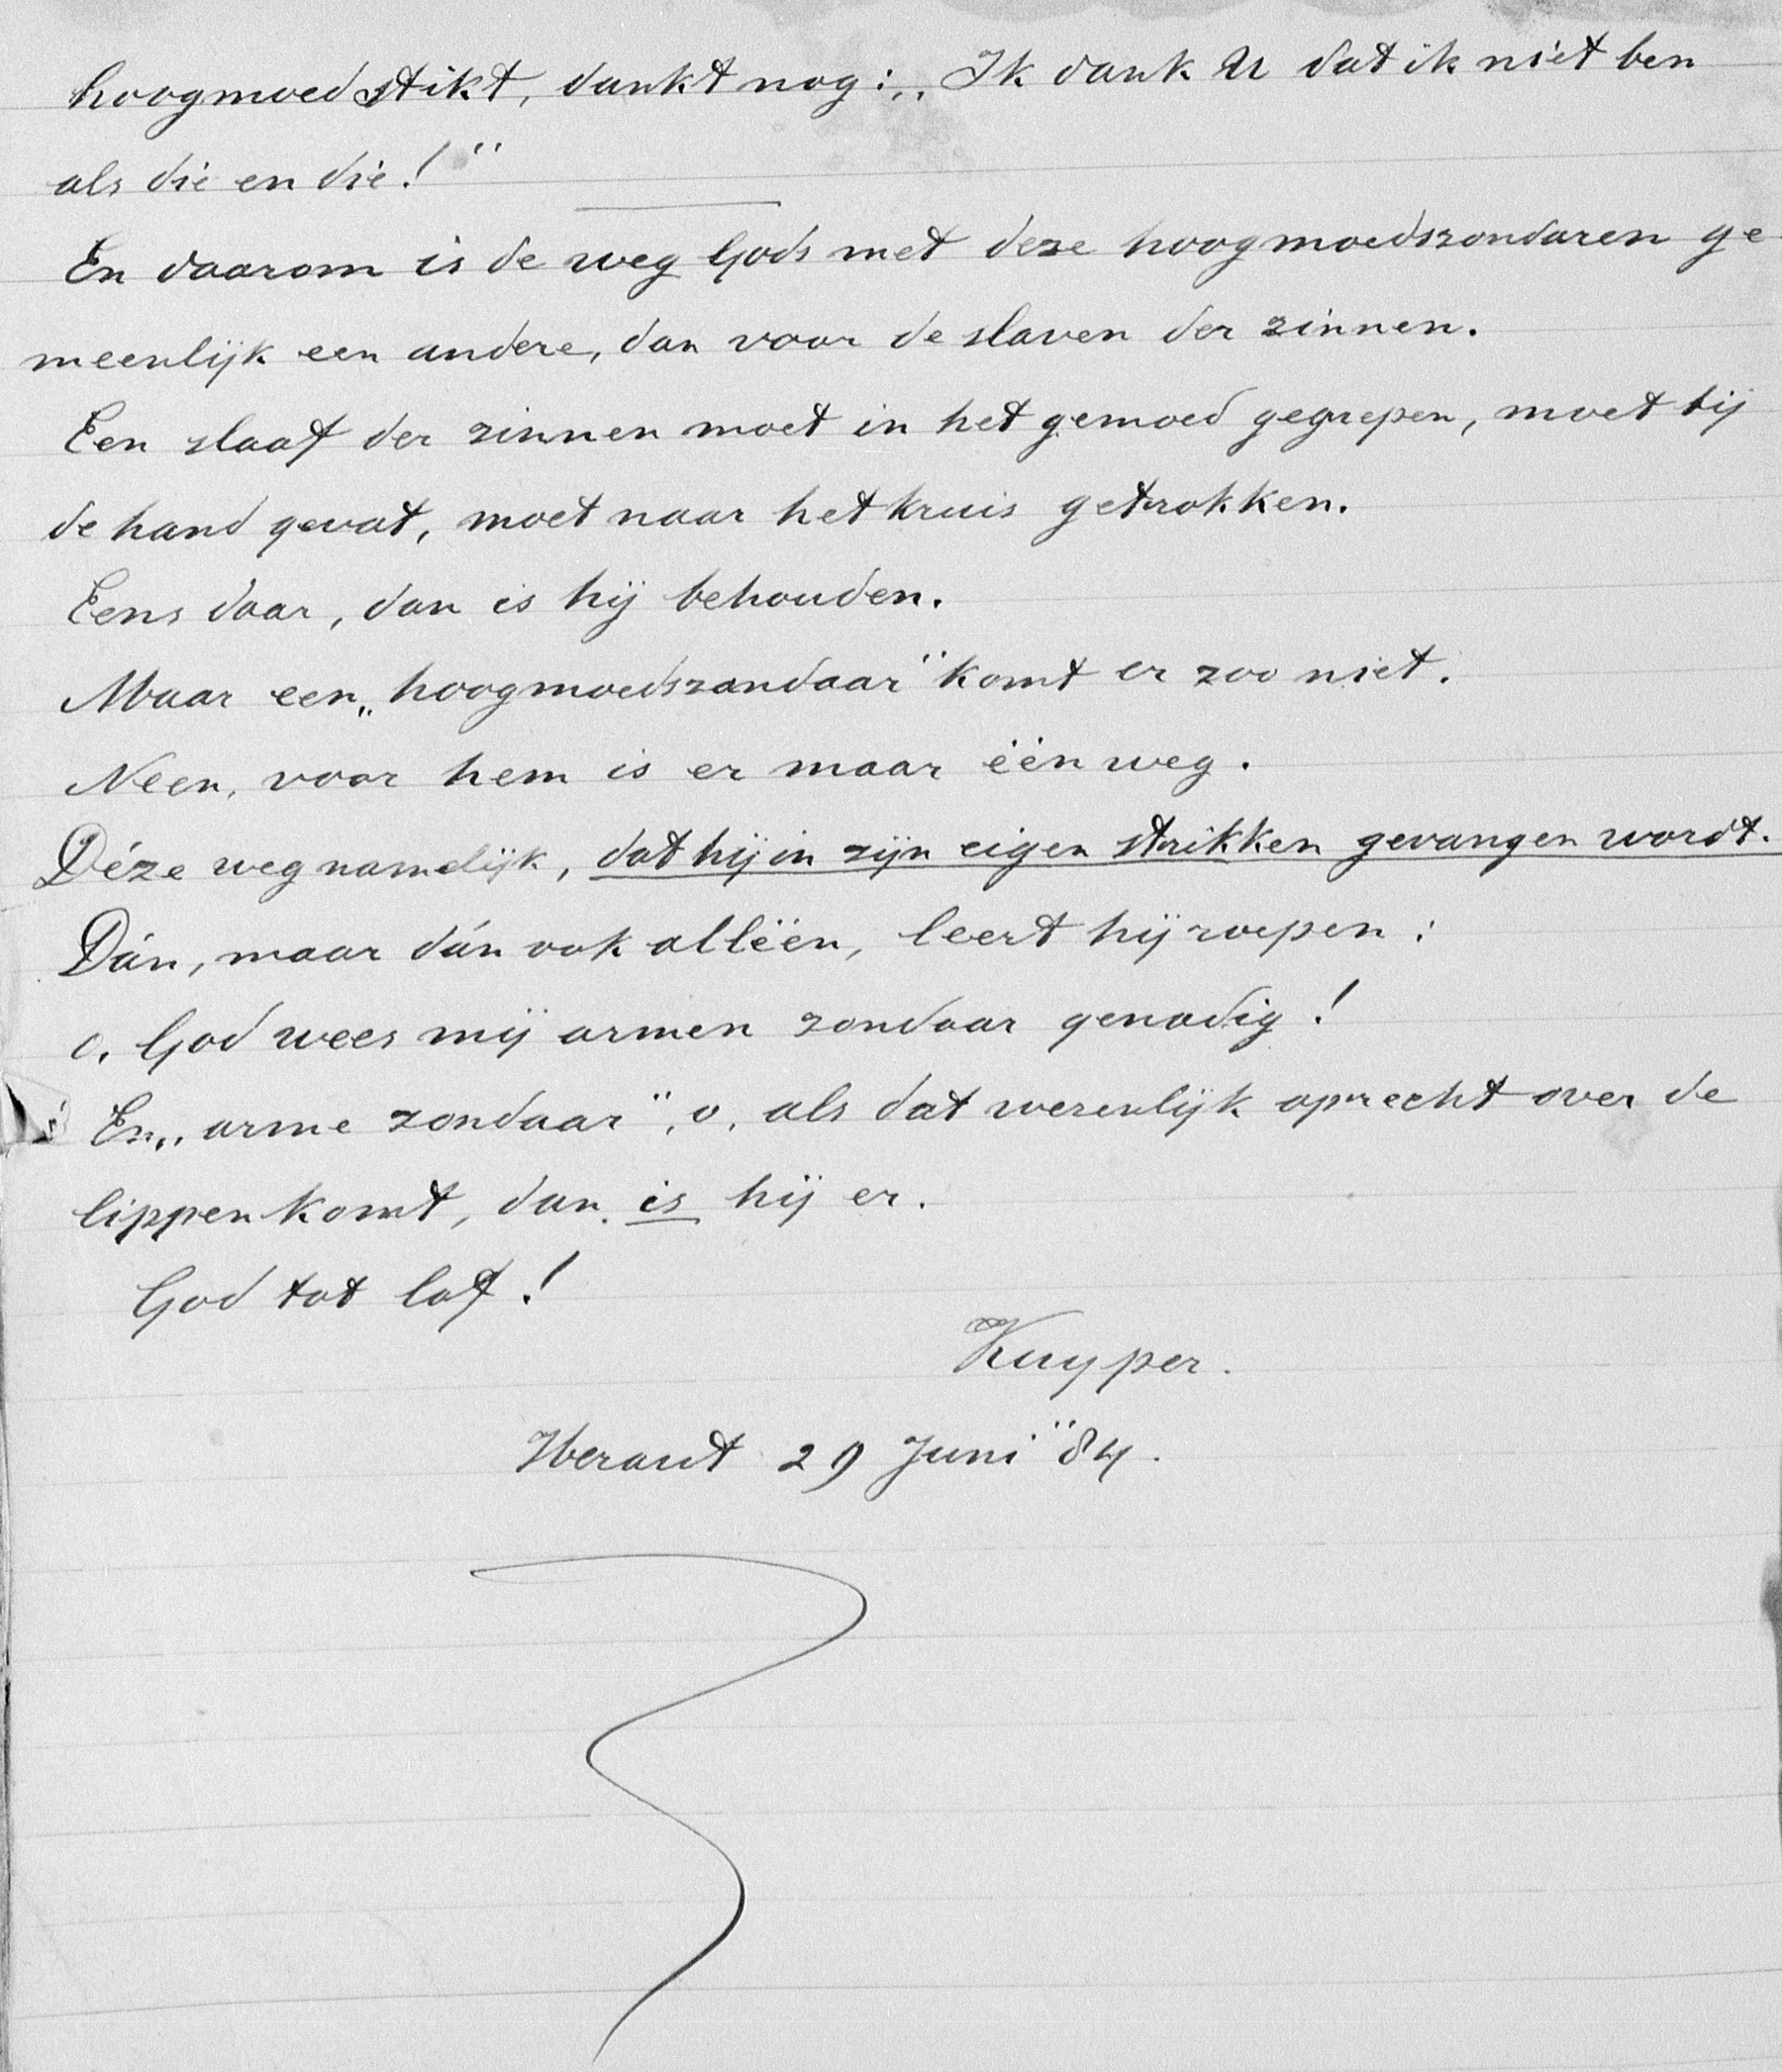 hoogmoed stikt, dankt nog: „Ik dank U dat ik niet ben
als die en die!"
En daarom is de weg Gods met deze hoogmoedszondaren ge-
meenlijk een andere, dan voor de slaven der zinnen.
Een slaaf der zinnen moet in het gemoed gegrepen, moet bij
de hand gevat, moet naar het kruis getrokken.
Eens daar, dan is hij behouden.
Maar een „hoogmoedszondaar" komt er zoo niet.
Neen, voor hem is er maar één weg.
Déze weg namelijk, dat hij in zijn eigen strikken gevangen wordt.
Dán, maar dán ook alléén, leert hij roepen:
o, God wees mij armen zondaar genadig!
En „arme zondaar", o, als dat wezenlijk oprecht over de
lippen komt, dan is hij er.
God tot lof!
Kuyper.
Heraut 29 Juni "84.